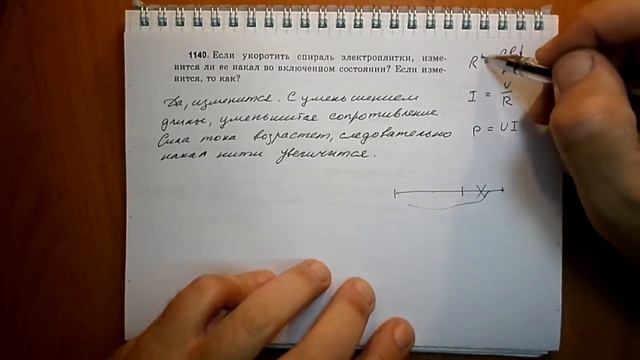 1140. Если укоротить спираль электроплитки, изме-
нится ли ее накал во включенном состоянии? Если изме-
нится, то как?
Да, изменится. С уменьшением
длины, уменьшитае сопротивление.
Сила тока возрастет, следовательно
накал нити увеличится.
R =
I = U/R
P = UI